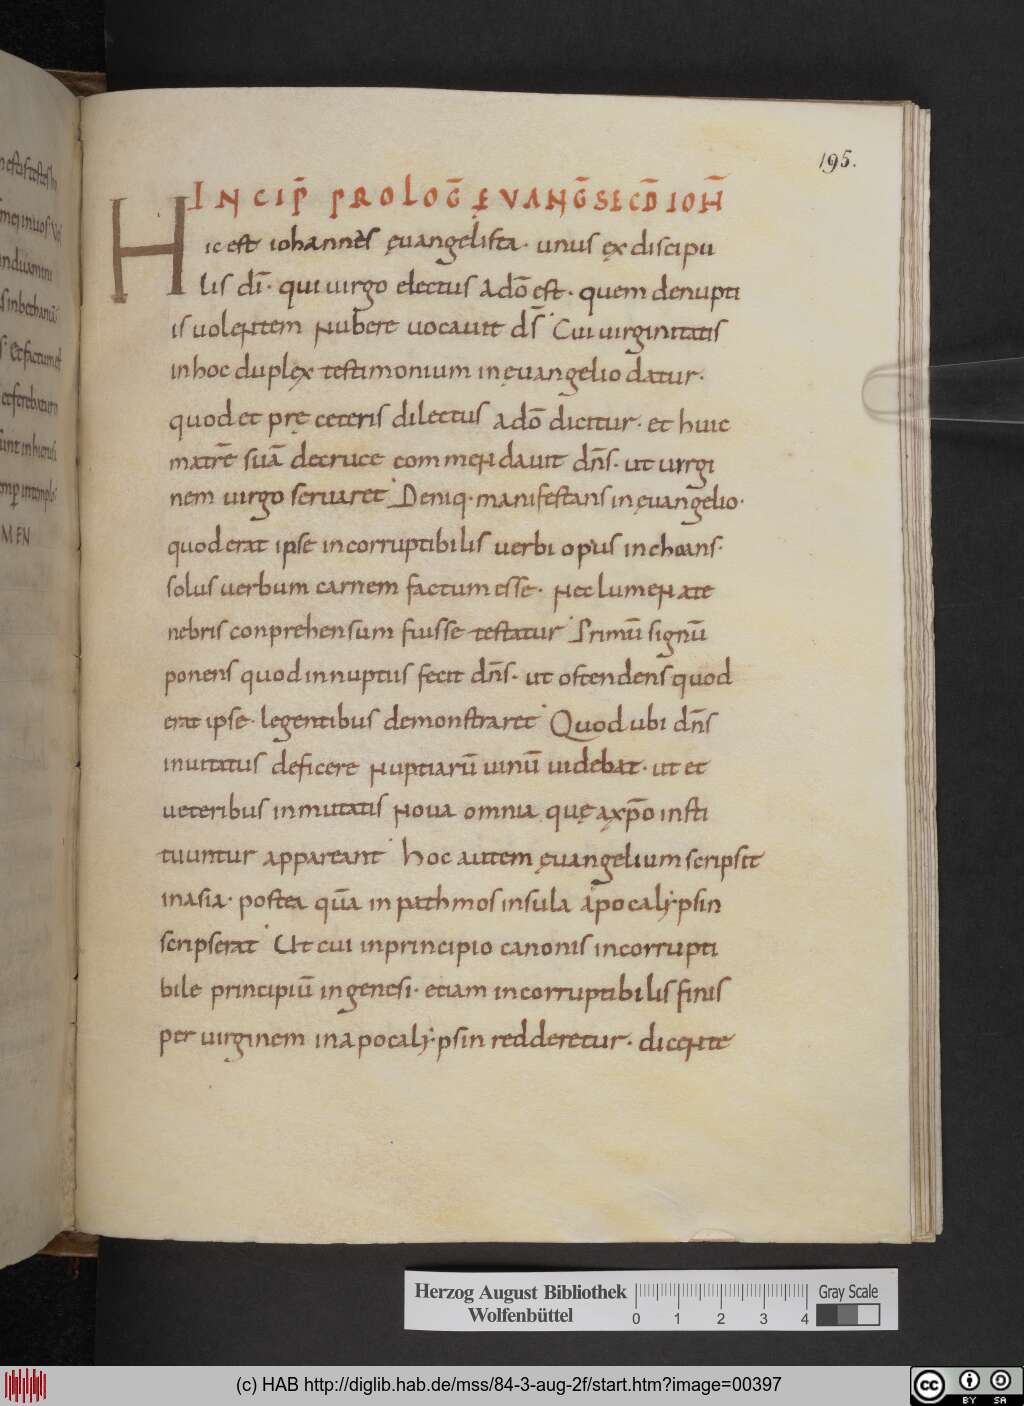 195.
INCIP̄ PROLOḠ EVANḠ SECD̄ IOH̄
Hic est iohannes ęuangelista· unus ęx discipu
lis dī· qui uirgo electus a dō est· quem denupti
is uolentem nubere uocauit ds̄· Cui uirginitatis
in hoc duplęx testimonium in ęuangelio datur·
quod et prę ceteris dilectus a dō dicitur· et huic
matrē suā decruce commendauit dn̄s· ut uirgi
nem uirgo seruaret· Deniq· manifestans in ęuangelio·
quod erat ipse incorruptibilis uerbi opus inchoans·
solus uerbum carnem factum esse· nec lumen ate
nebris conprehensum fuisse testatur· Primū signū
ponens quod innuptus fecit dn̄s· ut ostendens quod
erat ipse· legentibus demonstraret· Quod ubi dn̄s
inuitatus deficere nuptiarū uinū uidebat· ut et
ueteribus inmutatis noua omnia quę axp̄o insti
tuuntur appareant· hoc autem ęuangelium scripsit
inasia· postea quā in pathmos insula apocalẏpsin
scripserat· Ut cui inprincipio canonis incorrupti
bile principiū ingenesi· etiam incorruptibilis finis
per uirginem in apocalẏpsin redderetur· dicente
MEN
Herzog August Bibliothek
Wolfenbüttel
0 1 2 3 4
Gray Scale
(c) HAB http://diglib.hab.de/mss/84-3-aug-2f/start.htm?image=00397
cc BY SA